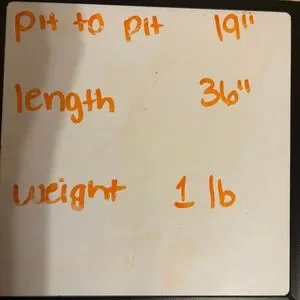 pit to pit 19"
length 36"
weight 1 lb